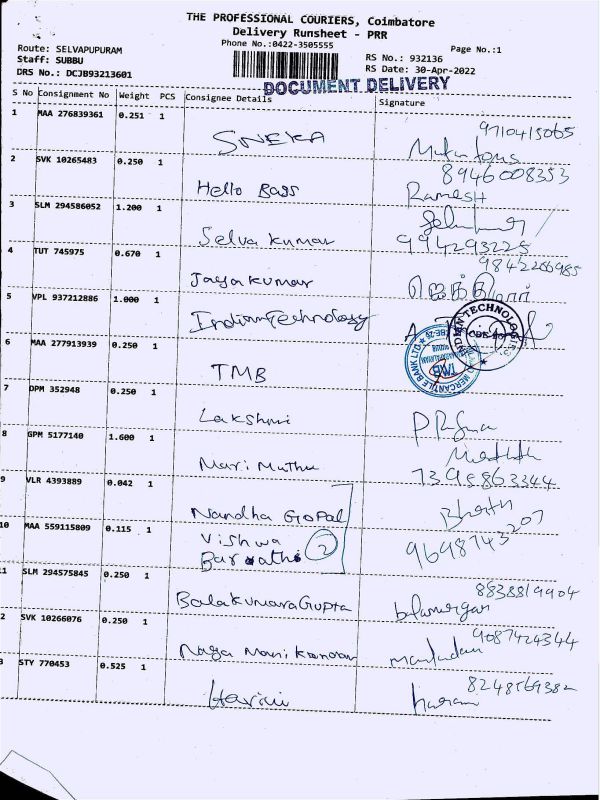 THE PROFESSIONAL COURIERS, Coimbatore
Delivery Runsheet - PRR
Phone No.:0422-3505555
Page No.:1
Route: SELVAPUPURAM
Staff: SUBBU
DRS No.: DCJB93213601
RS No.: 932136
RS Date: 30-Apr-2022
DOCUMENT DELIVERY
S No Consignment No Weight PCS Consignee Details Signature
1 MAA 276839361 0.251 1 SNEKA 9710415065
2 SVK 10265483 0.250 1 Hello Bass Ramesh 8946008353
3 SLM 294586052 1.200 1 Selva Kumar 994293225
4 TUT 745975 0.670 1 Jayakumar 9842266985
5 VPL 937212886 1.000 1 Indian Technology
INDIAN TECHNOLOGIES
6 MAA 277913939 0.250 1 TMB
MERCANTILE BANK LTD
TMB
7 DPM 352948 0.250 1 Lakshmi
8 GPM 5177140 1.600 1 Mari Muthu 7398863344
9 VLR 4393889 0.042 1 Nandha Gopal
10 MAA 559115809 0.115 1 Vishwa
Barvathi 2 9698743207
1 SLM 294575845 0.250 1 BalaKumaraGupta balamurgan 8838819904
2 SVK 10266076 0.250 1 Naga Mani Kandan 9087424344
3 STY 770453 0.525 1 Harini 8248569382